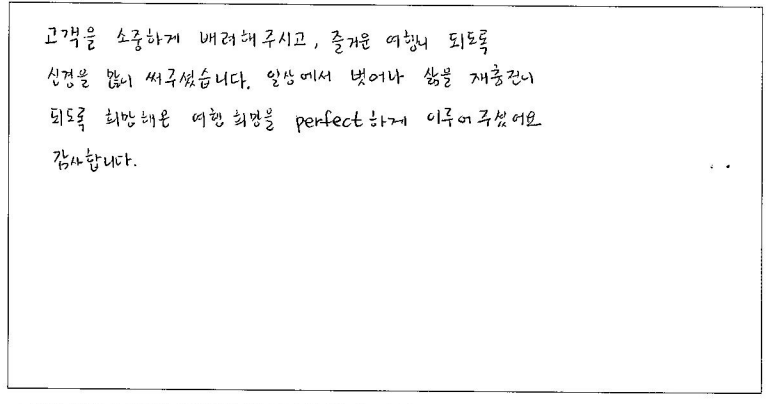 고객을 소중하게 배려해주시고, 즐거운 여행이 되도록
신경을 많이 써주셨습니다. 일상에서 벗어나 삶을 재충전이
되도록 희망해온 여행 희망을 perfect하게 이루어주셨어요
감사합니다.